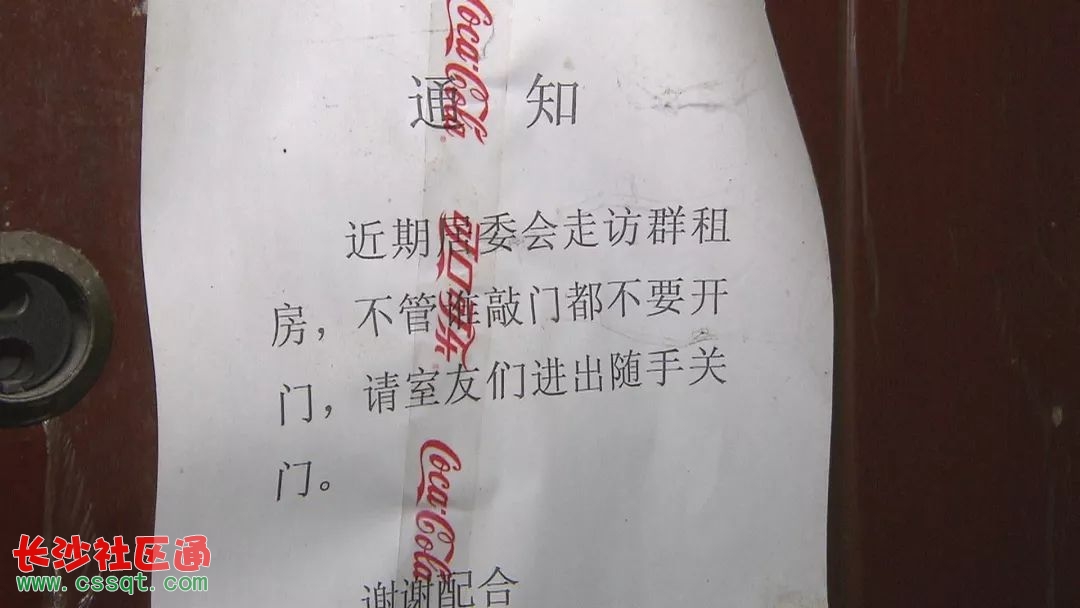 Coca-Cola
通知
近期居委会走访群租
可口可乐
房，不管谁敲门都不要开
门，请室友们进出随手关
门。
Coca-Cola
谢谢配合
长沙社区通
www.cssqt.com